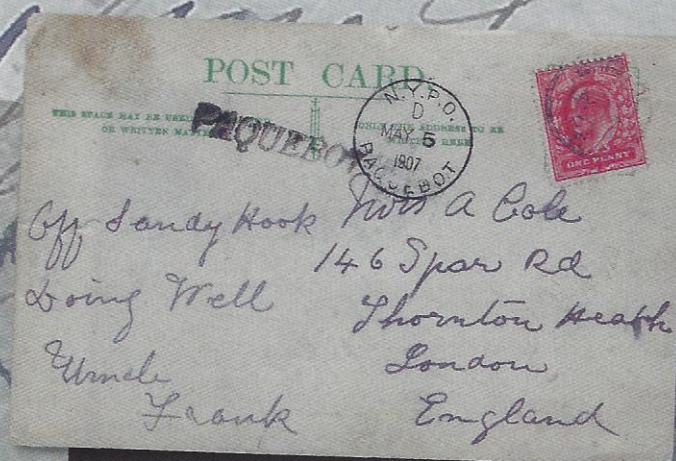 POST CARD
THIS SPACE MAY BE USED
OR WRITTEN MATTER
ONLY THE ADDRESS TO BE
WRITTEN HERE
PAQUEBOT
N.Y.P.O.
D
MAY 5
1907
PAQUEBOT
ONE PENNY
Off Sandy Hook
Doing Well
Uncle
Frank
Mrs A Cole
146 Spar Rd
Thornton Heath
London
England